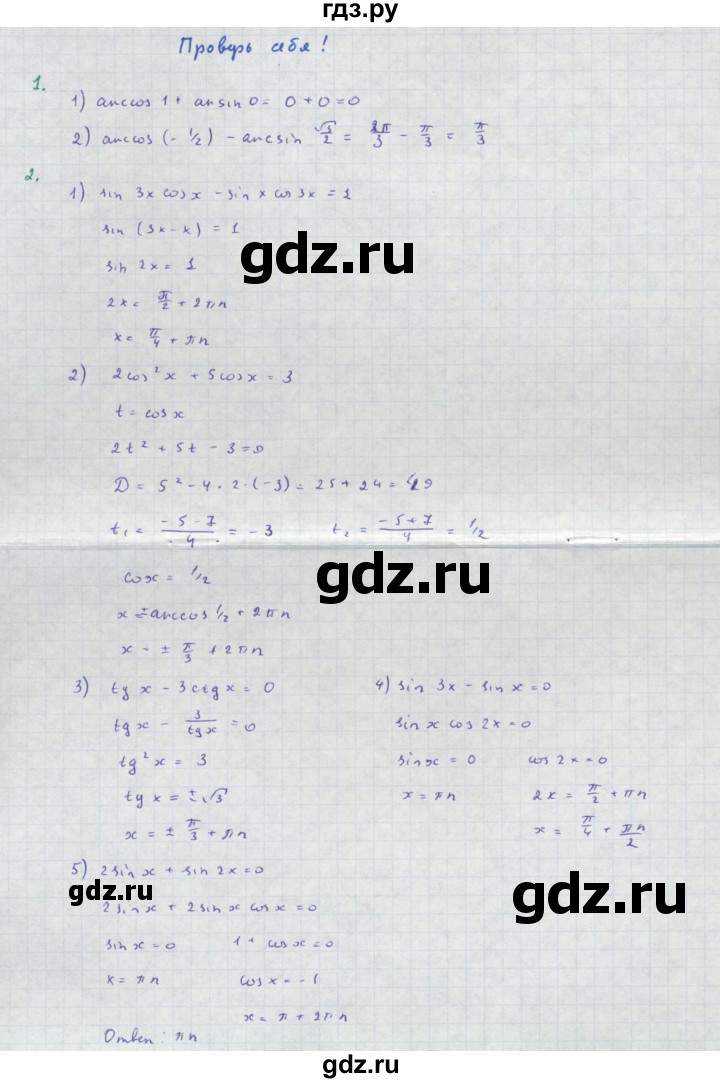 гдз.ру
Проверь себя!
1.
1) arccos 1 + arsin 0 = 0 + 0 = 0
2) arccos (- 1/2) - arcsin √3/2 = 2π/3 - π/3 = π/3
2.
1) sin 3x cos x - sin x cos 3x = 1
sin (3x - x) = 1
sin 2x = 1
2x = π/2 + 2πn
x = π/4 + πn
gdz.ru
2) 2cos²x + 5cosx = 3
t = cosx
2t² + 5t - 3 = 0
D = 5² - 4 · 2 · (-3) = 25 + 24 = 49
t₁ = (-5-7)/4 = -3 t₂ = (-5+7)/4 = 1/2
cosx = 1/2
x = ± arccos 1/2 + 2πn
x - ± π/3 + 2πn
gdz.ru
3) tg x - 3ctg x = 0
tgx - 3/tgx = 0
tg²x = 3
tg x = ±√3
x = ± π/3 + πn
4) sin 3x - sin x = 0
sin x cos 2x = 0
sinx = 0 cos 2x = 0
x = πn 2x = π/2 + πn
x = π/4 + πn/2
5) 2sin x + sin 2x = 0
2sinx + 2sinx cosx = 0
sinx = 0 1 + cosx = 0
x = πn cosx = -1
x = π + 2πn
Ответ: πn
gdz.ru
gdz.ru
gdz.ru